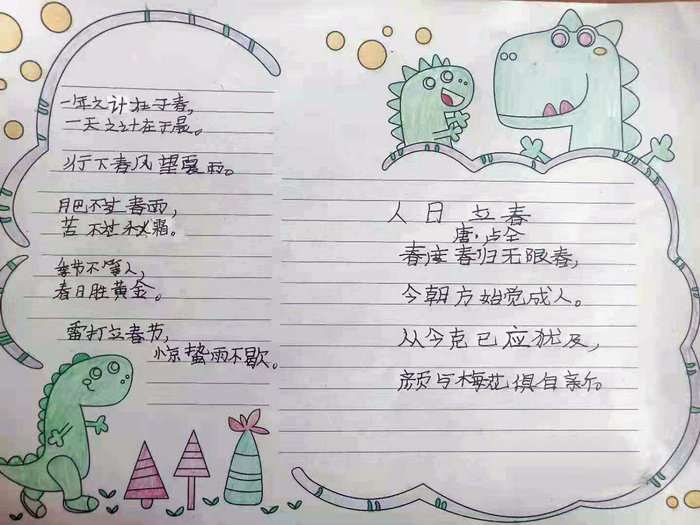 一年之计在于春，
一天之计在于晨。
行下春风望夏雨。
肥不过春雨，
苦不过秋霜。
季节不等人，
春日胜黄金。
雷打立春节，
惊蛰雨不歇。
人日立春
唐·卢仝
春度春归无限春，
今朝方始觉成人。
从今克己应犹及，
颜与梅花俱自新。